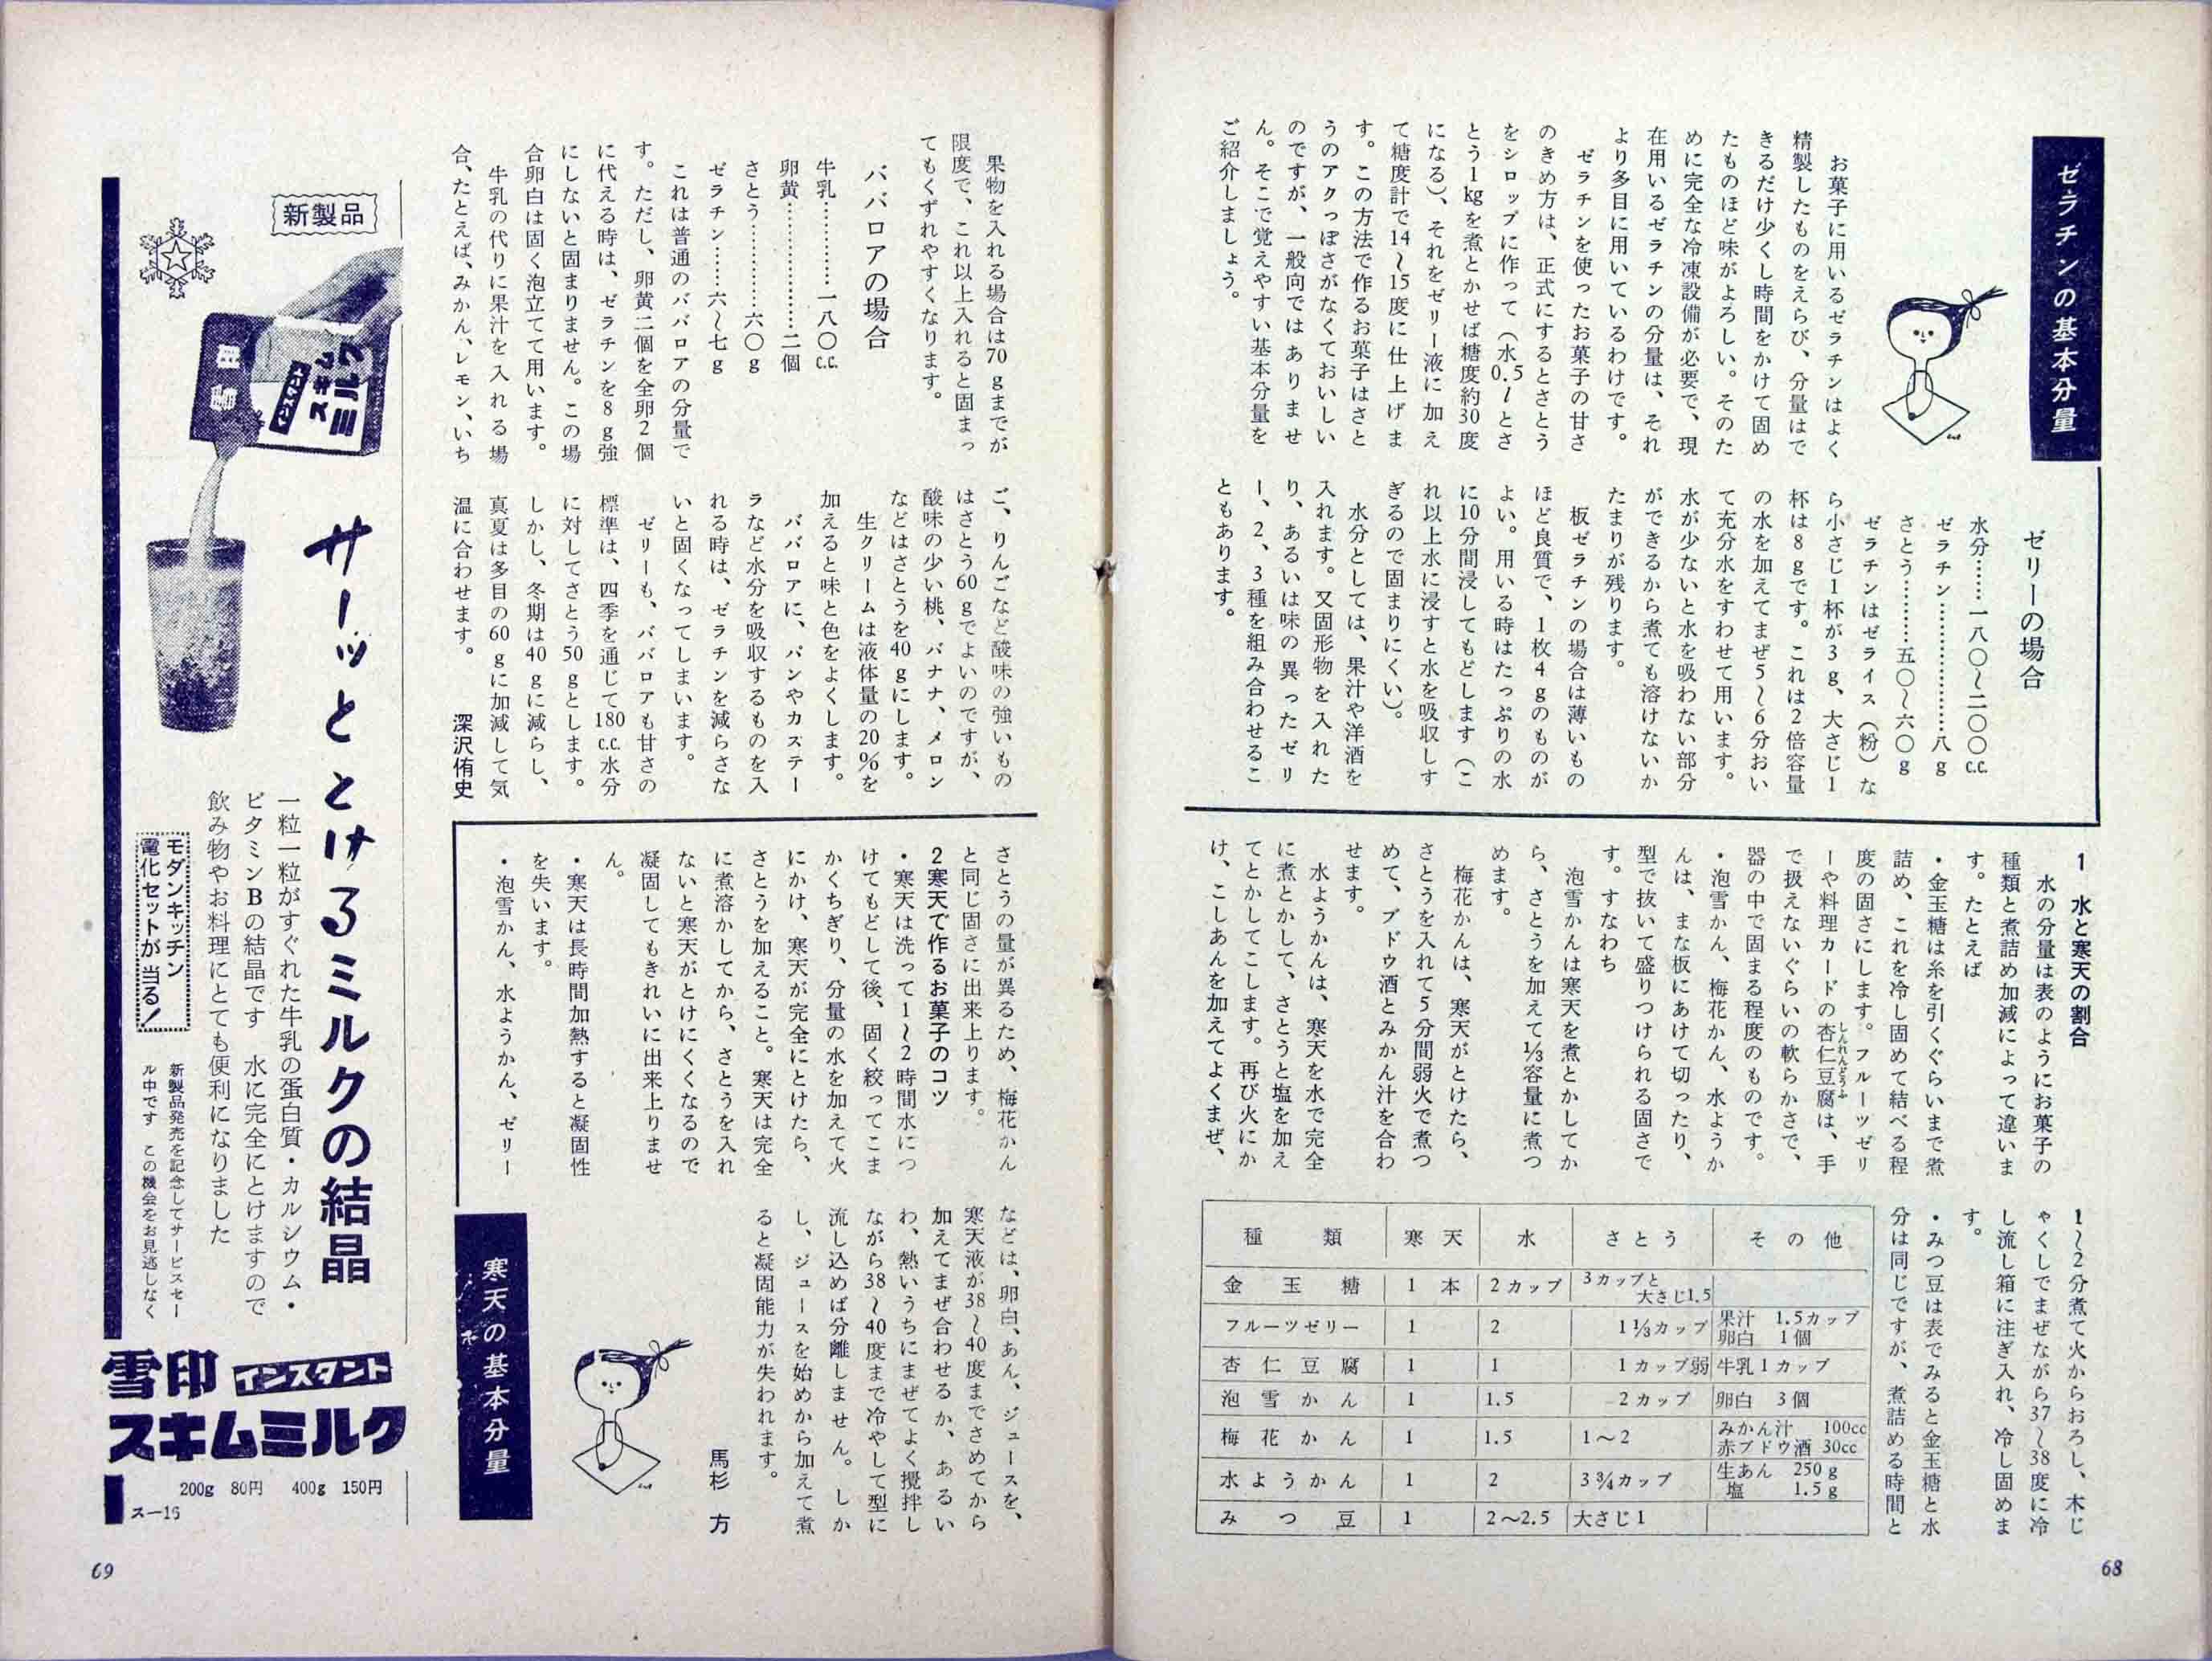 ゼラチンの基本分量
お菓子に用いるゼラチンはよく
精製したものをえらび、分量はで
きるだけ少くし時間をかけて固め
たものほど味がよろしい。そのた
めに完全な冷凍設備が必要で、現
在用いるゼラチンの分量は、それ
より多目に用いているわけです。
ゼラチンを使ったお菓子の甘さ
のきめ方は、正式にするとさとう
をシロップに作って(水0.5lとさ
とう1kgを煮とかせば糖度約30度
になる)、それをゼリー液に加え
て糖度計で14〜15度に仕上げま
す。この方法で作るお菓子はさと
うのアクっぽさがなくておいしい
のですが、一般向ではありませ
ん。そこで覚えやすい基本分量を
ご紹介しましょう。
ゼリーの場合
水分……一八〇〜二〇〇c.c.
ゼラチン………………八g
さとう………五〇〜六〇g
ゼラチンはゼライス(粉)な
ら小さじ1杯が3g、大さじ1
杯は8gです。これは2倍容量
の水を加えてまぜ5〜6分おい
て充分水をすわせて用います。
水が少ないと水を吸わない部分
ができるから煮ても溶けないか
たまりが残ります。
板ゼラチンの場合は薄いもの
ほど良質で、1枚4gのものが
よい。用いる時はたっぷりの水
に10分間浸してもどします(こ
れ以上水に浸すと水を吸収しす
ぎるので固まりにくい)。
水分としては、果汁や洋酒を
入れます。又固形物を入れた
り、あるいは味の異ったゼリ
ー、2、3種を組み合わせるこ
ともあります。
1 水と寒天の割合
水の分量は表のようにお菓子の
種類と煮詰め加減によって違いま
す。たとえば
・金玉糖は糸を引くぐらいまで煮
詰め、これを冷し固めて結べる程
度の固さにします。フルーツゼリ
ーや料理カードの杏仁豆腐は、手
しんれんどうふ
で扱えないぐらいの軟らかさで、
器の中で固まる程度のものです。
・泡雪かん、梅花かん、水ようか
んは、まな板にあけて切ったり、
型で抜いて盛りつけられる固さで
す。すなわち
泡雪かんは寒天を煮とかしてか
ら、さとうを加えて⅓容量に煮つ
めます。
梅花かんは、寒天がとけたら、
さとうを入れて5分間弱火で煮つ
めて、ブドウ酒とみかん汁を合わ
せます。
水ようかんは、寒天を水で完全
に煮とかして、さとうと塩を加え
てとかしてこします。再び火にか
け、こしあんを加えてよくまぜ、
1〜2分煮て火からおろし、木じ
ゃくしでまぜながら37〜38度に冷
し流し箱に注ぎ入れ、冷し固めま
す。
・みつ豆は表でみると金玉糖と水
分は同じですが、煮詰める時間と
種類 寒天 水 さとう その他
金玉糖 1本 2カップ 3カップと大さじ1.5
フルーツゼリー 1 2 1⅓カップ 果汁 1.5カップ 卵白 1個
杏仁豆腐 1 1 1カップ弱 牛乳1カップ
泡雪かん 1 1.5 2カップ 卵白 3個
梅花かん 1 1.5 1〜2 みかん汁 100cc 赤ブドウ酒 30cc
水ようかん 1 2 3¾カップ 生あん 250g 塩 1.5g
みつ豆 1 2〜2.5 大さじ1
68
果物を入れる場合は70gまでが
限度で、これ以上入れると固まっ
てもくずれやすくなります。
ババロアの場合
牛乳…………一八〇c.c.
卵黄………………二個
さとう…………六〇g
ゼラチン……六〜七g
これは普通のババロアの分量で
す。ただし、卵黄二個を全卵2個
に代える時は、ゼラチンを8g強
にしないと固まりません。この場
合卵白は固く泡立てて用います。
牛乳の代りに果汁を入れる場
合、たとえば、みかん、レモン、いち
ご、りんごなど酸味の強いもの
はさとう60gでよいのですが、
酸味の少い桃、バナナ、メロン
などはさとうを40gにします。
生クリームは液体量の20%を
加えると味と色をよくします。
ババロアに、パンやカステー
ラなど水分を吸収するものを入
れる時は、ゼラチンを減らさな
いと固くなってしまいます。
ゼリーも、ババロアも甘さの
標準は、四季を通じて180c.c.水分
に対してさとう50gとします。
しかし、冬期は40gに減らし、
真夏は多目の60gに加減して気
温に合わせます。 深沢侑史
さとうの量が異るため、梅花かん
と同じ固さに出来上ります。
2寒天で作るお菓子のコツ
・寒天は洗って1〜2時間水につ
けてもどして後、固く絞ってこま
かくちぎり、分量の水を加えて火
にかけ、寒天が完全にとけたら、
さとうを加えること。寒天は完全
に煮溶かしてから、さとうを入れ
ないと寒天がとけにくくなるので
凝固してもきれいに出来上りませ
ん。
・寒天は長時間加熱すると凝固性
を失います。
・泡雪かん、水ようかん、ゼリー
などは、卵白、あん、ジュースを、
寒天液が38〜40度までさめてから
加えてまぜ合わせるか、あるい
わ、熱いうちにまぜてよく攪拌し
ながら38〜40度まで冷やして型に
流し込めば分離しません。しか
し、ジュースを始めから加えて煮
ると凝固能力が失われます。
馬杉 方
寒天の基本分量
新製品
雪印
インスタント
スキム
ミルク
サーッととけるミルクの結晶
一粒一粒がすぐれた牛乳の蛋白質・カルシウム・
ビタミンBの結晶です 水に完全にとけますので
飲み物やお料理にとても便利になりました
モダンキッチン
電化セットが当る!
新製品発売を記念してサービスセー
ル中です この機会をお見逃しなく
雪印 インスタント
スキムミルク
200g 80円 400g 150円
スー16
69